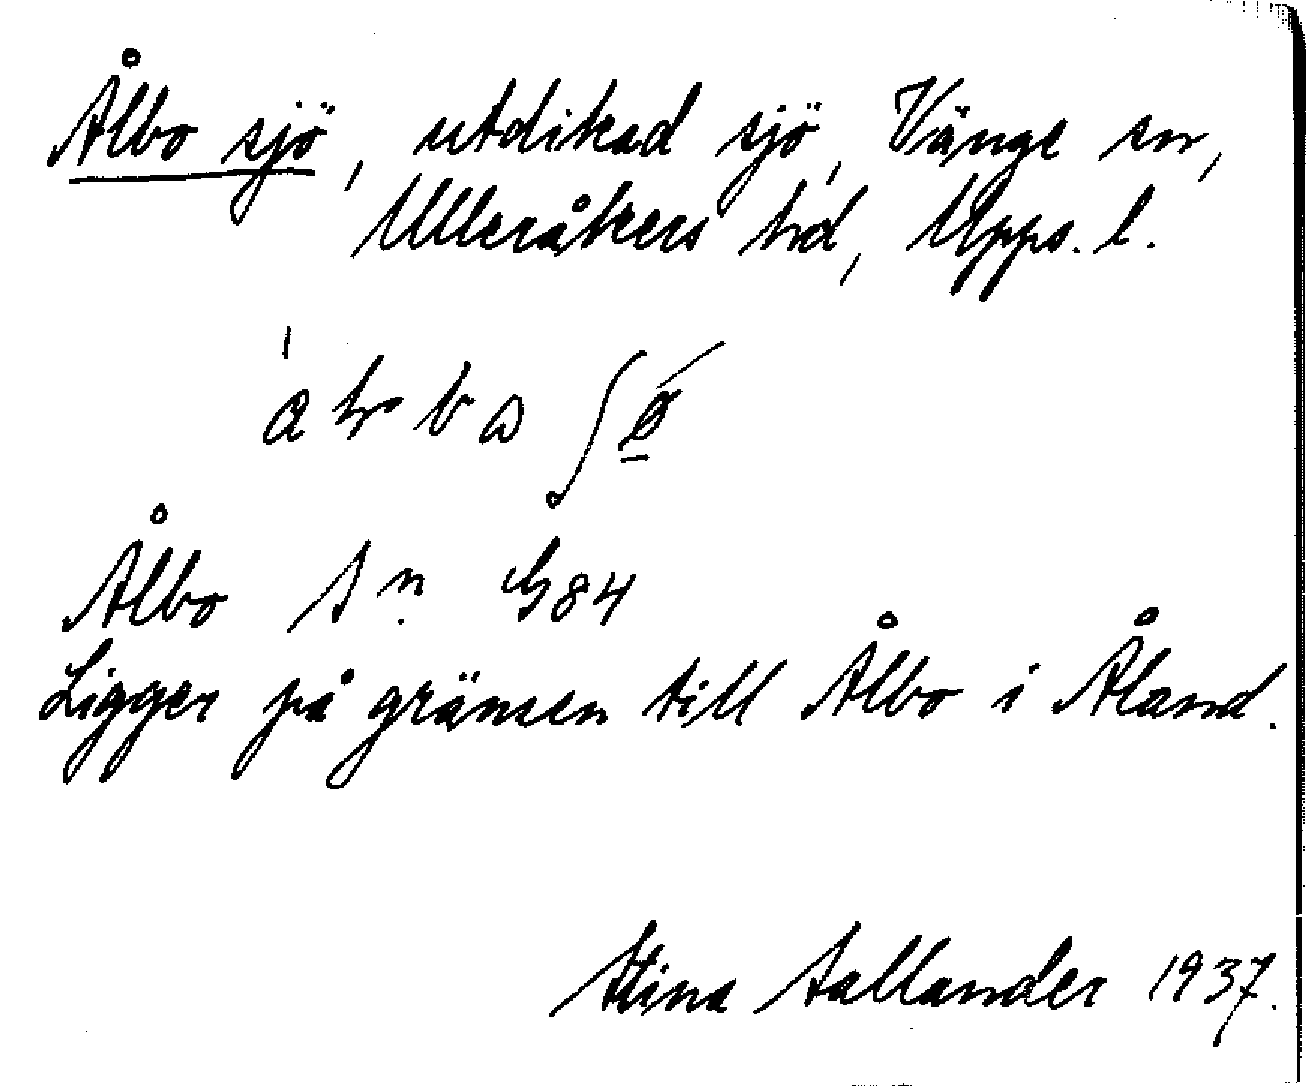 Ålbo sjö, utdikad sjö, Vänge sn,
Ulleråkers hd, Upps. l.
Ålbo Sn. G84
Ligger på gränsen till Ålbo i Åland.
Stina Sallander 1937.